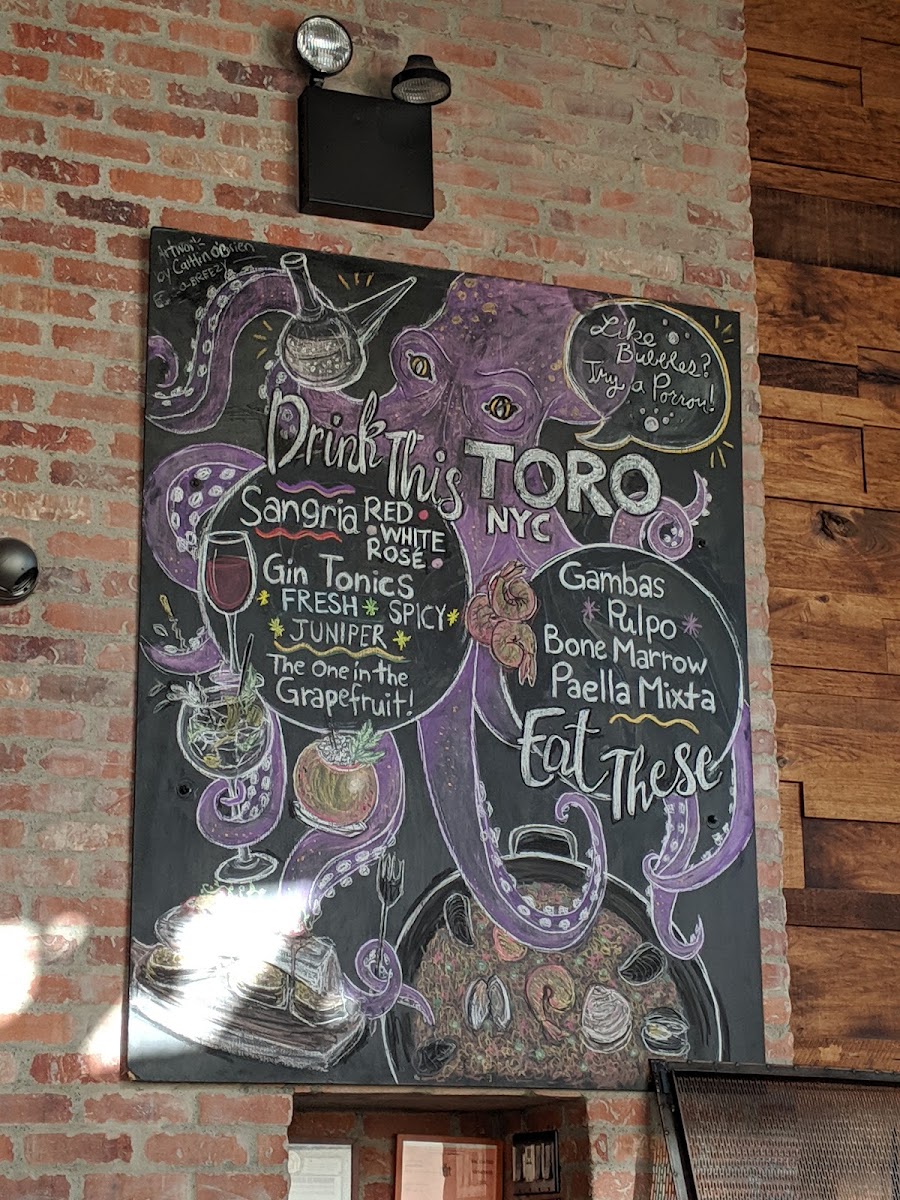 Artwork
by Caitlin O'Brien
Like
Bubbles?
Try a Porron!
Drink This
TORO
NYC
Sangria RED
WHITE
ROSÉ
Gin Tonics
FRESH * SPICY *
* JUNIPER *
The One in the
Grapefruit!
Gambas
* Pulpo *
Bone Marrow
Paella Mixta
Eat These